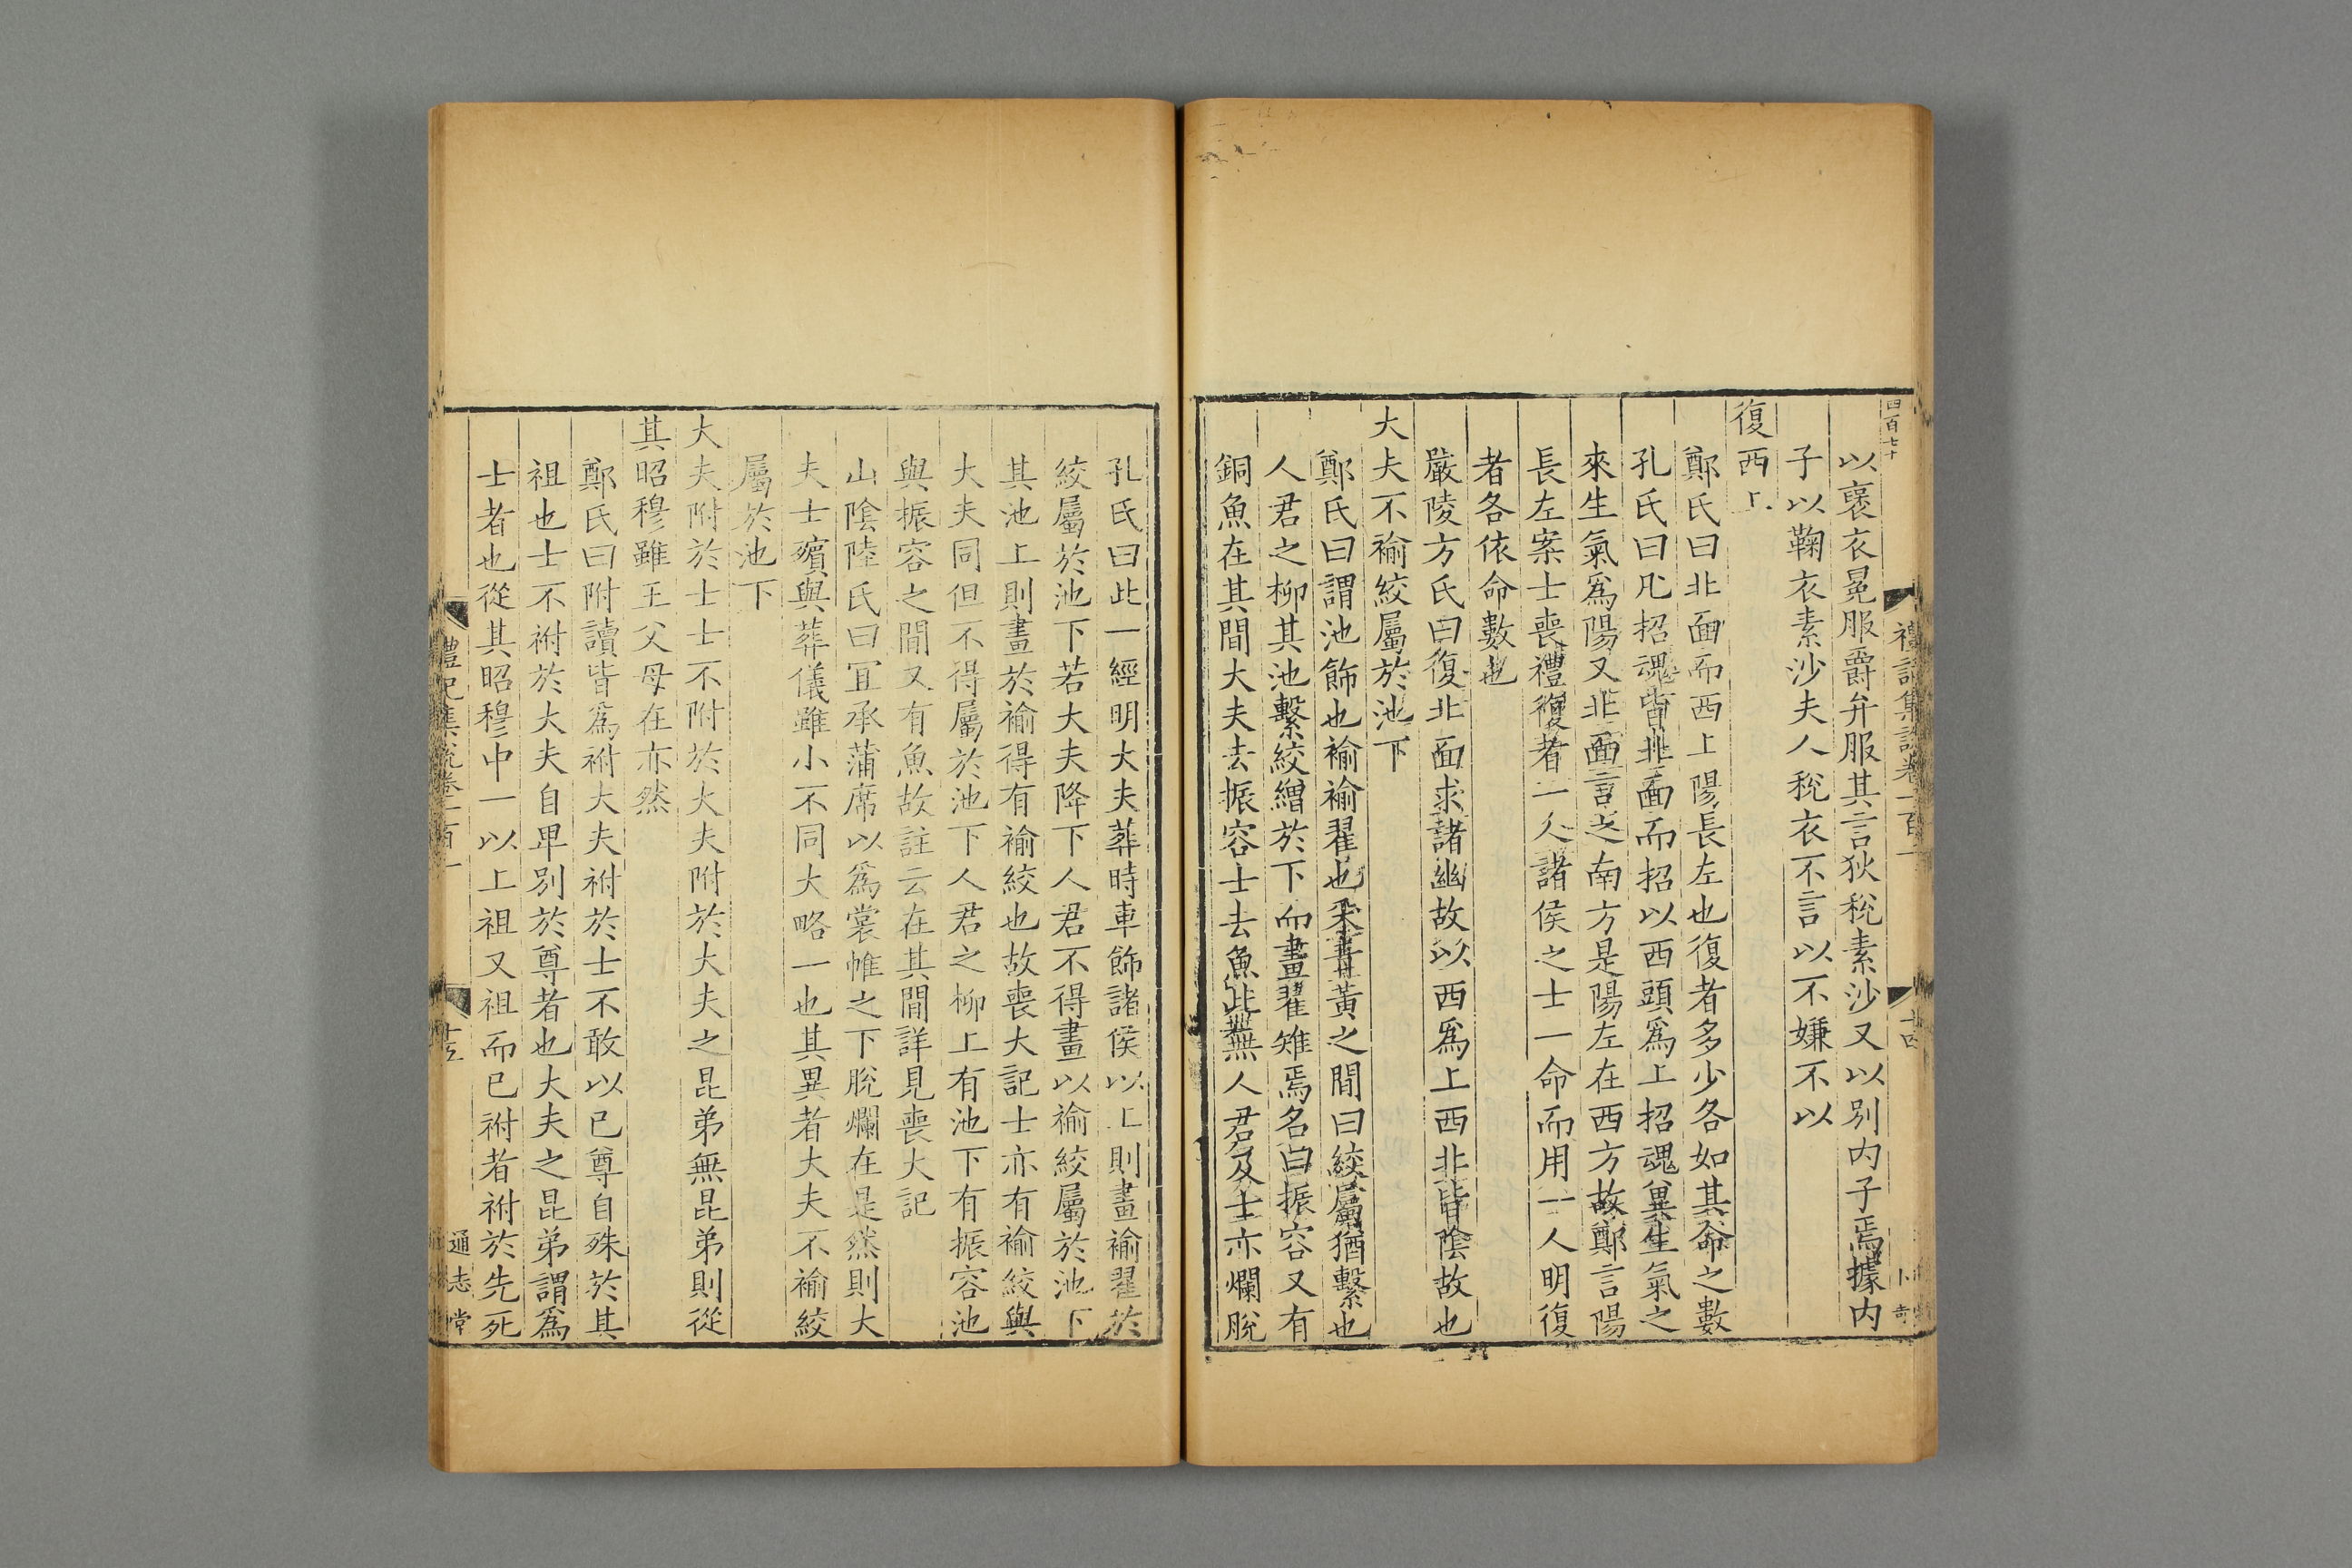 四百七十
禮記集說卷一百一
十四
以褒衣冕服爵弁服其言狄稅素沙又以別内子焉據内
子以鞠衣素沙夫人稅衣不言以不嫌不以
復西上
鄭氏曰北面而西上陽長左也復者多少各如其命之數
孔氏曰凡招魂皆北面而招以西頭爲上招魂冀生氣之
來生氣爲陽又北面言之南方是陽左在西方故鄭言陽
長左案士喪禮復者一人諸侯之士一命而用一人明復
者各依命數也
嚴陵方氏曰復北面求諸幽故以西爲上西北皆陰故也
大夫不褕絞屬於池下
鄭氏曰謂池飾也褕褕翟也采青黃之間曰絞屬猶繫也
人君之柳其池繫絞繒於下而畫翟雉焉名曰振容又有
銅魚在其間大夫去振容士去魚此無人君及士亦爛脫
孔氏曰此一經明大夫葬時車飾諸侯以上則畫褕翟於
絞屬於池下若大夫降下人君不得畫以褕絞屬於池下
其池上則畫於褕得有褕絞也故喪大記士亦有褕絞與
大夫同但不得屬於池下人君之柳上有池下有振容池
與振容之間又有魚故註云在其間詳見喪大記
山陰陸氏曰宜承蒲席以爲裳帷之下脫爛在是然則大
夫士殯與葬儀雖小不同大略一也其異者大夫不褕絞
屬於池下
大夫附於士士不附於大夫附於大夫之昆弟無昆弟則從
其昭穆雖王父母在亦然
鄭氏曰附讀皆爲祔大夫祔於士不敢以已尊自殊於其
祖也士不祔於大夫自卑別於尊者也大夫之昆弟謂爲
士者也從其昭穆中一以上祖又祖而已祔者祔於先死
禮記集說卷一百一
十五
通志堂